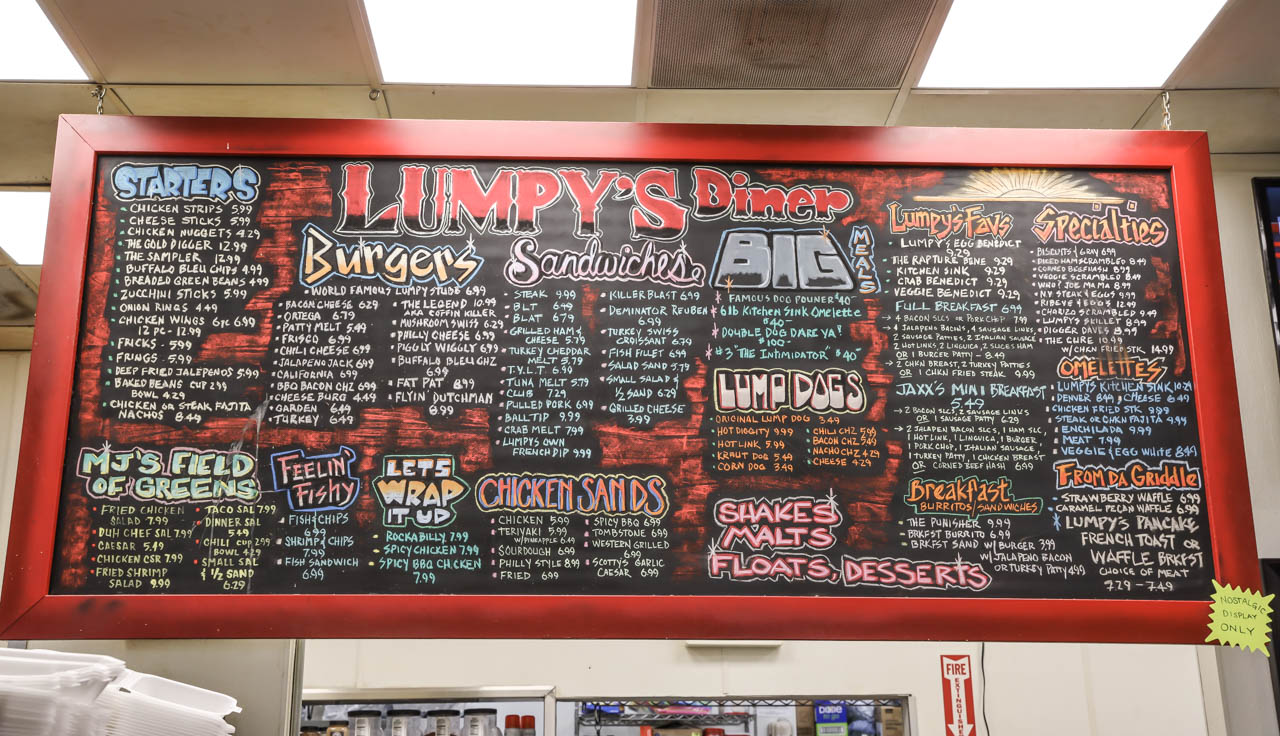 LUMPY'S Diner
STARTERS
• CHICKEN STRIPS 5.99
• CHEESE STICKS 5.99
• CHICKEN NUGGETS 4.29
• THE GOLD DIGGER 12.99
• THE SAMPLER 12.99
• BUFFALO BLEU CHIPS 4.99
• BREADED GREEN BEANS 4.99
• ZUCCHINI STICKS 5.99
• ONION RINGS 4.49
• CHICKEN WINGS 6pc 6.99
12 pc - 12.99
• FRICKS - 5.99
• FRINGS - 5.99
• DEEP FRIED JALEPENOS 5.99
• BAKED BEANS CUP 2.99
BOWL 4.29
• CHICKEN OR STEAK FAJITA
NACHOS 8.49
Burgers
• WORLD FAMOUS LUMPY STUBE 6.99
• BACON CHEESE 6.29
• ORTEGA 6.79
• PATTY MELT 5.49
• FRISCO 6.99
• CHILI CHEESE 6.99
• JALAPENO JACK 6.99
• CALIFORNIA 6.99
• BBQ BACON CHZ 6.99
• CHEESE BURG 4.49
• GARDEN 6.49
• TURKEY 6.49
• THE LEGEND 10.99
AKA COFFIN KILLER
• MUSHROOM SWISS 6.29
• PHILLY CHEESE 6.99
• PIGGLY WIGGLY 6.99
• BUFFALO BLEU CHZ
6.99
• FAT PAT 8.99
• FLYIN' DUTCHMAN
8.99
Sandwiches
• STEAK 9.99
• BLT 6.79
• BLAT 6.79
• GRILLED HAM &
CHEESE 5.79
• TURKEY CHEDDAR
MELT 5.79
• T.Y.L.T. 6.99
• TUNA MELT 5.79
• CLUB 7.29
• PULLED PORK 6.99
• BALL TIP 9.99
• CRAB MELT 7.99
• LUMPYS OWN
FRENCH DIP 9.99
• KILLER BLAST 6.99
• DEMINATOR REUBEN
6.99
• TURKEY SWISS
CROISSANT 6.79
• FISH FILLET 6.99
• SALAD SAND 5.79
• SMALL SALAD &
½ SAND 6.29
• GRILLED CHEESE
3.99
BIG MEALS
* FAMOUS DOG POUNER $40
* 6lb KITCHEN SINK OMELETTE
$40-
* DOUBLE DOG DARE YA!
$100-
* #3 "THE INTIMIDATOR" $40
LUMP DOGS
• ORIGINAL LUMP DOG 3.49
• HOT DIGGITY 9.99
• HOT LINK 5.99
• KRAUT DOG 5.49
• CORN DOG 3.49
• CHILI CHZ 5.99
• BACON CHZ 5.49
• NACHO CHZ 4.29
• CHEESE 4.29
SHAKES
MALTS
FLOATS, DESSERTS
LUMPY'S FAVS
• LUMPY'S EGG BENEDICT
9.29
• THE RAPTURE BENE 9.29
• KITCHEN SINK 9.29
• CRAB BENEDICT 9.29
• VEGGIE BENEDICT 9.29
FULL BREAKFAST 6.99
→ 4 BACON SLCS OR PORK CHOP 7.99
→ 4 JALAPENO BACONS, 4 SAUSAGE LINKS,
2 SAUSAGE PATTIES, 2 ITALIAN SAUSAGE
2 HOT LINKS, 2 LINGUICA, 2 SLICES HAM
OR 1 BURGER PATTY - 8.49
→ 2 CHKN BREAST, 2 TURKEY PATTIES
OR 1 CHKN FRIED STEAK 9.99
JAXX'S MINI BREAKFAST
5.49
→ 2 BACON SLCS, 2 SAUSAGE LINKS
OR 1 SAUSAGE PATTY 6.29
→ 2 JALAPEN BACON SLCS, 1 HAM SLC
1 HOT LINK, 1 LINGUICA, 1 BURGER,
1 PORK CHOP, 1 ITALIAN SAUSAGE,
1 TURKEY PATTY, 1 CHICKEN BREAST
OR CORNED BEEF HASH 6.99
Breakfast
BURRITOS/SANDWICHES
• THE PUNISHER 9.99
• BRKFST BURRITO 6.99
• BRKFST SAND W/ BURGER 3.99
W/ JALAPENO BACON
OR TURKEY PATTY 4.99
SPECIALTIES
• BISCUITS & GRAVY 6.99
• DICED HAM SCRAMBLED 8.49
• CORNED BEEF HASH 8.99
• VEGGIE SCRAMBLED 8.49
• WHO? JOE MAMA 8.99
• NY STEAK & EGGS 9.99
• RIBEYE & EGGS 12.99
• CHORIZO SCRAMBLED 9.49
• LUMPYS SKILLET 8.99
• DIGGER DAVES 8.99
• THE CURE 10.99
W/ CHKN FRIED STK 14.99
OMELETTES
LUMPYS KITCHEN SINK 10.29
• DENVER 8.49 • CHEESE 6.49
• CHICKEN FRIED STK 9.99
• STEAK OR CHKN FAJITA 9.99
• ENCHILADA 9.99
• MEAT 7.99
• VEGGIE & EGG WHITE 8.49
FROM DA GRIDDLE
• STRAWBERRY WAFFLE 6.99
• CARAMEL PECAN WAFFLE 6.99
* LUMPY'S PANCAKE
FRENCH TOAST OR
WAFFLE BRKFST
CHOICE OF MEAT
7.29 - 7.49
MJ'S FIELD
OF GREENS
• FRIED CHICKEN
SALAD 7.99
• DUH CHEF SAL 7.99
• CAESAR 5.49
• CHICKEN CSR 7.99
• FRIED SHRIMP
SALAD 9.99
• TACO SAL 7.99
• DINNER SAL
5.49
• CHILI CUP 2.99
BOWL 4.29
• SMALL SAL
& ½ SAND
6.29
FEELIN'
FISHY
• FISH & CHIPS
6.99
• SHRIMP & CHIPS
7.99
• FISH SANDWICH
6.99
LETS
WRAP
IT UP
• ROCKABILLY 7.99
• SPICY CHICKEN 7.99
• SPICY BBQ CHICKEN
7.99
CHICKEN SANDS
• CHICKEN 5.99
• TERIYAKI 5.99
W/ PINEAPPLE 6.49
• SOURDOUGH 6.99
• PHILLY STYLE 8.99
• FRIED 6.99
• SPICY BBQ 6.99
• TOMBSTONE 6.99
• WESTERN GRILLED
6.99
• SCOTTS GARLIC
CAESAR 6.99
NOSTALGIC
DISPLAY
ONLY
FIRE
EXTINGUISHER